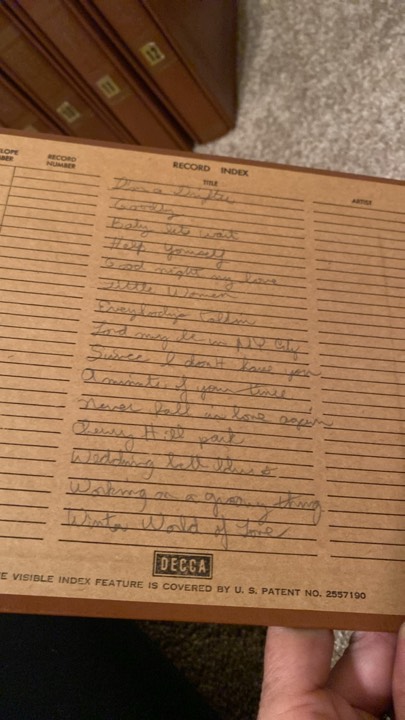 17
11
10
RECORD INDEX
LOPE
BER
RECORD
NUMBER
TITLE
ARTIST
I'm a Drifter
Baby lets wait
Help Yourself
Good night my love
Little Woman
Everybody's Talkin
Lord my in N.Y. City
Since I don't have you
A minute of your time
Never fall in love again
Cherry Hill park
Wedding bell blues
Working on a groovy thing
Winter World of Love
DECCA
E VISIBLE INDEX FEATURE IS COVERED BY U. S. PATENT NO. 2557190